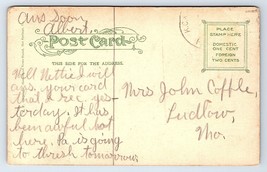 Ans Soon
Albert.
Post Card.
THIS SIDE FOR THE ADDRESS.
PLACE
STAMP HERE
DOMESTIC
ONE CENT
FOREIGN
TWO CENTS
Well Nettie I will
ans, your card
that I rec, yes
terday. It has
been awful hot
here. Pa is going
to thresh tomorrow.
Mrs John Coffle,
Ludlow,
Mo.